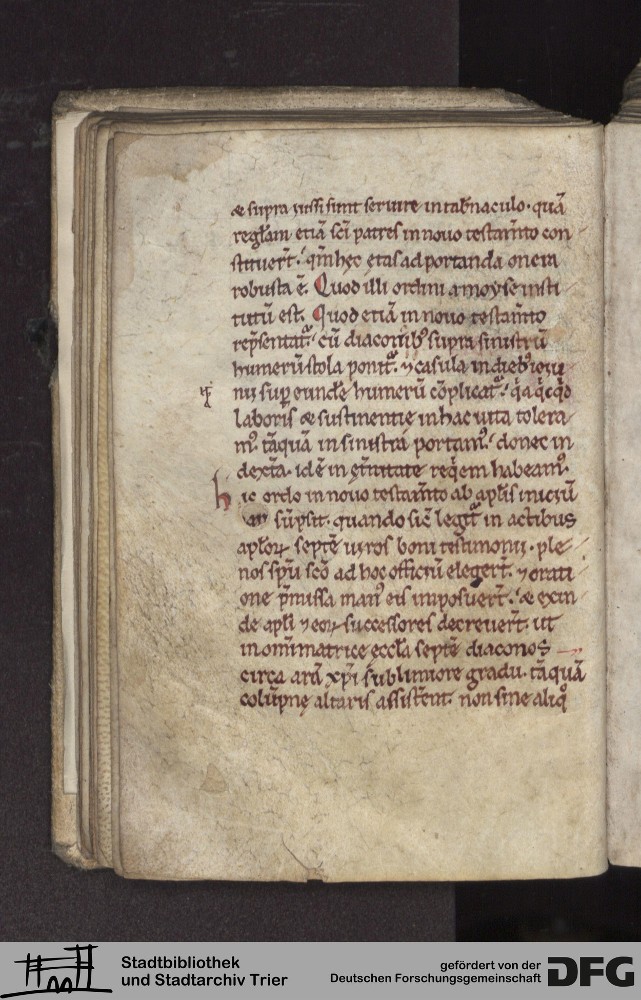 & supra iussi sunt seruire in tab̄naculo. quā
regłam etiā sc̄i patres in nouo testam̄to con
stituer̄t. qm̄ hęc ętas ad portanda onera
robusta ē. Quod illi ordini a moyse insti
tutū est. Quod etiā in nouo testam̄to
rep̄sentat᷑. cū diaconib᷒ supra sinistrū
humerū stola ponit᷑. ⁊ casula in dieb᷒ ieiu
nii sup̱ eundē humerū cōplicat᷑. q̇a q̇cq̇d
laboris & sustinentię in hac uita tolera
m᷒. tāquā in sinistra portam᷒. donec in
dext̄a. id ē in et̄nitate req̇em habeam᷒.
hic ordo in nouo testam̄to ab apłis iniciū
sūpsit. quando sic̄ legit᷑ in actibus
apłoꝝ septē uiros boni testimonii. ple
nos sp̄u sc̄o ad hoc officiū eleger̄t. ⁊ orati
one p̄missa man᷒ eis imposuer̄t. & exin
de apłi ⁊ eoꝝ successores decreuer̄t. ut
in om̄i matrice ęccła septē diaconos
circa arā xp̄i sublimiore gradu. tāquā
colūpnę altaris assister̄ent. non sine aliq̊
Stadtbibliothek
und Stadtarchiv Trier
gefördert von der
Deutschen Forschungsgemeinschaft
DFG